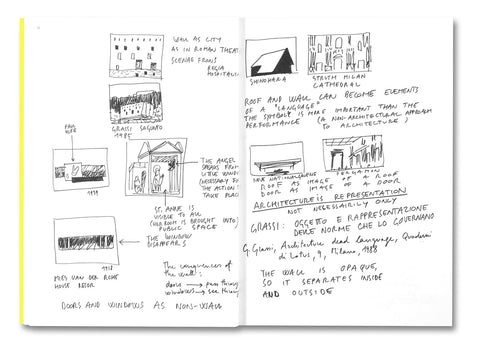 WALL AS CITY
AS IN ROMAN THEATR
SCENAE FRONS
REGIA
HOSPITALI
GRASSI SAGUNTO
1985
1929
THE ANGEL
SPEAKS FROM
LITTLE WINDO
NECESSARY FO
THE ACTION T
TAKE PLAC
ST. ANNE IS
VISIBLE TO ALL
IS BROUGHT INTO
PUBLIC SPACE
THE WINDOW
DISAPPEARS
1928
MIES VAN DER ROHE
HOUSE
The consequences of
the wall:
doors → pass throug
windows → see throug
DOORS AND WINDOWS AS NON-WALL
SHINOHARA
STRUTH MILAN
CATHEDRAL
ROOF AND WALL CAN BECOME ELEMENTS
OF A "LANGUAGE"
THE SYMBOL IS MORE IMPORTANT THAN THE
PERFORMANCE (A NON-ARCHITECTURAL APPROACH
TO ARCHITECTURE)
PERGAMON
ROOF AS IMAGE OF A ROOF
DOOR AS IMAGE OF A DOOR
ARCHITECTURE IS REPRESENTATION
NOT NECESSARILY ONLY
GRASSI: OGGETTO E RAPPRESENTAZIONE
DELLE NORME CHE LO GOVERNANO
G. Grassi, Architecture dead language, Quaderni
di Lotus, 9, Milano, 1988
THE WALL IS OPAQUE,
SO IT SEPARATES INSIDE
AND OUTSIDE